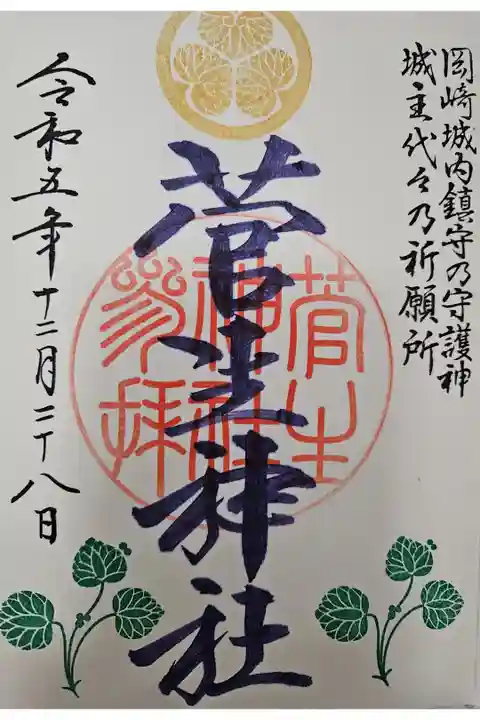 岡崎城内鎮守乃守護神
城主代々乃祈願所
菅生神社
菅生神社参拝
令和五年十二月二十八日